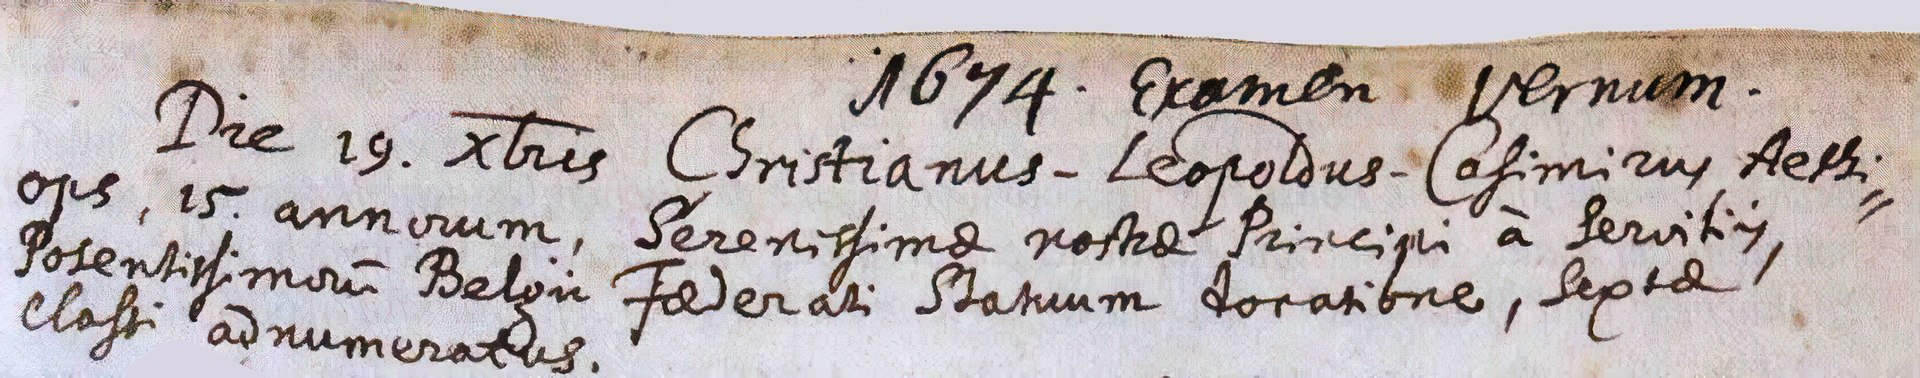 1674. Examen Vernum.
Die 19. xbris Christianus-Leopoldus-Casimirus, Aethi=
ops, 15. annorum, Serenissimæ nostræ Principi à Servitiis,
Potentissimorū Belgii Fœderati Statuum donatione, Sextæ
Classi adnumeratus.